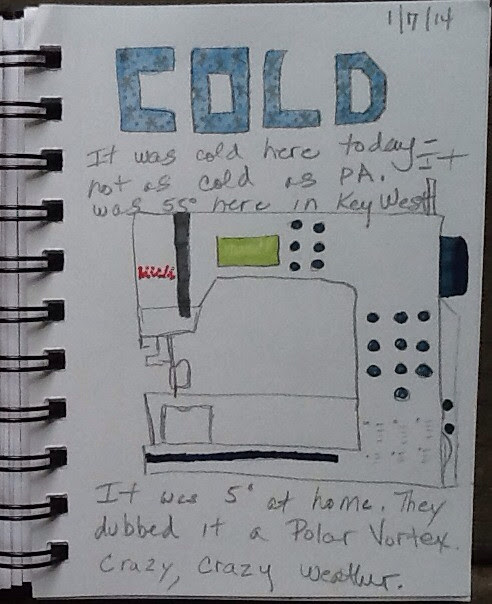 1/7/14
COLD
It was cold here today - It
not as cold as PA.
was 55° here in Key West
It was 5° at home. They
dubbed it a Polar Vortex.
Crazy, crazy weather.